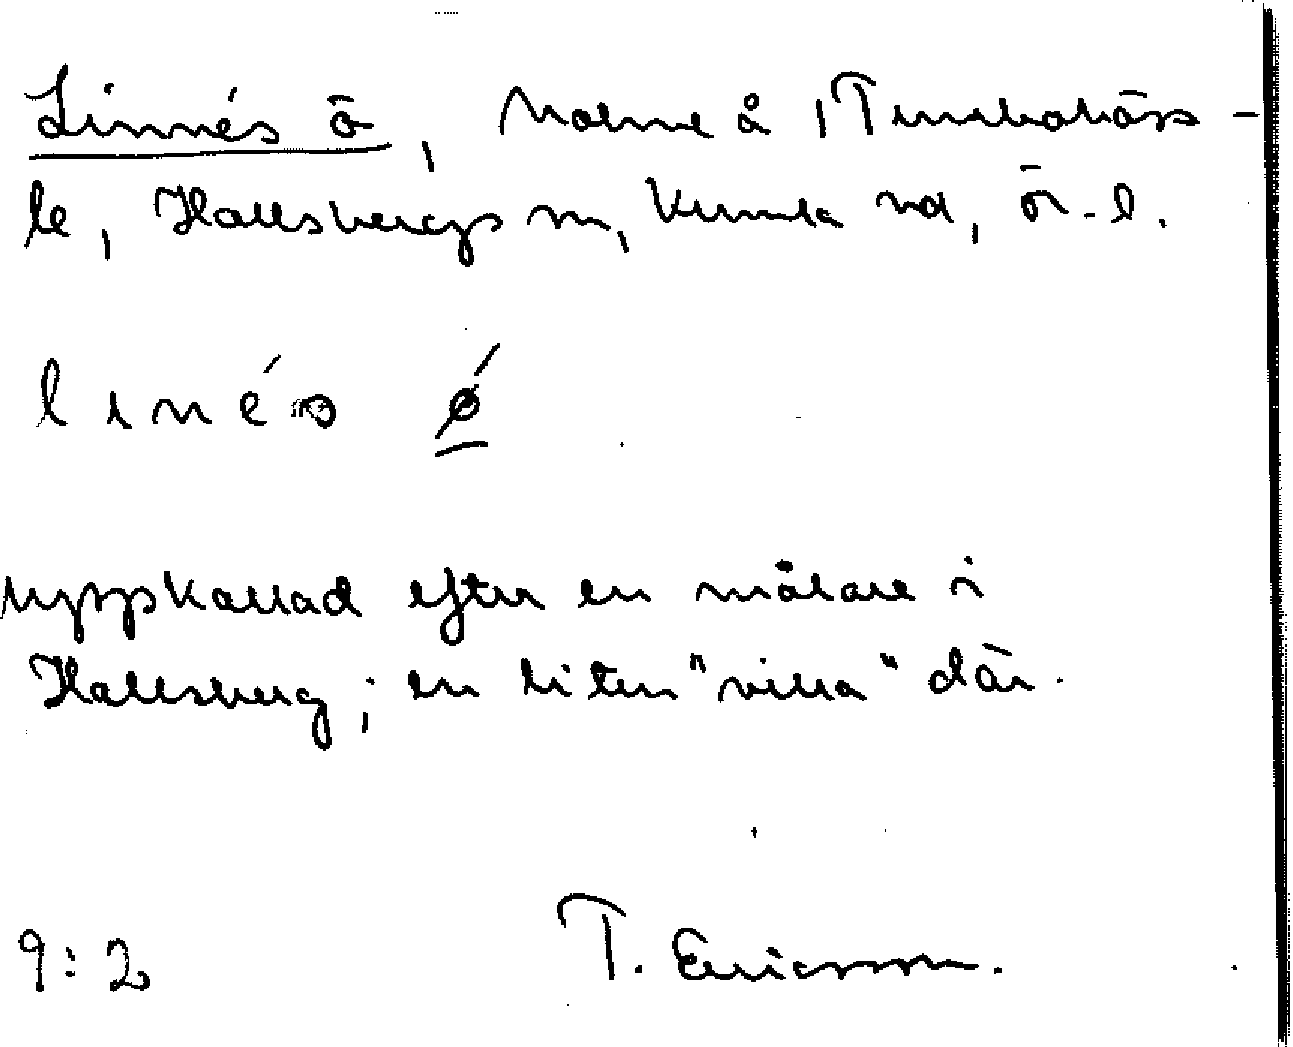 Linnés ö, holme å
le, Hallsbergs sn, Kumla hd, Ör. l.
linés ǿ
uppkallad efter en målare i
Hallsberg; en liten "villa" där.
9:2 T. Ericsson.